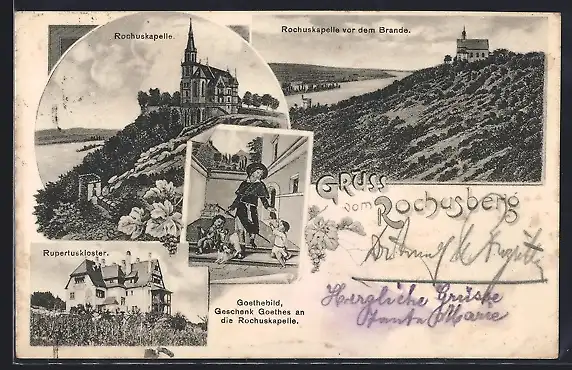 Rochuskapelle.
Rochuskapelle vor dem Brande.
GRUSS
vom Rochusberg
Rupertuskloster.
Goethebild,
Geschenk Goethes an
die Rochuskapelle.
Herzliche Grüsse
Tante Marie